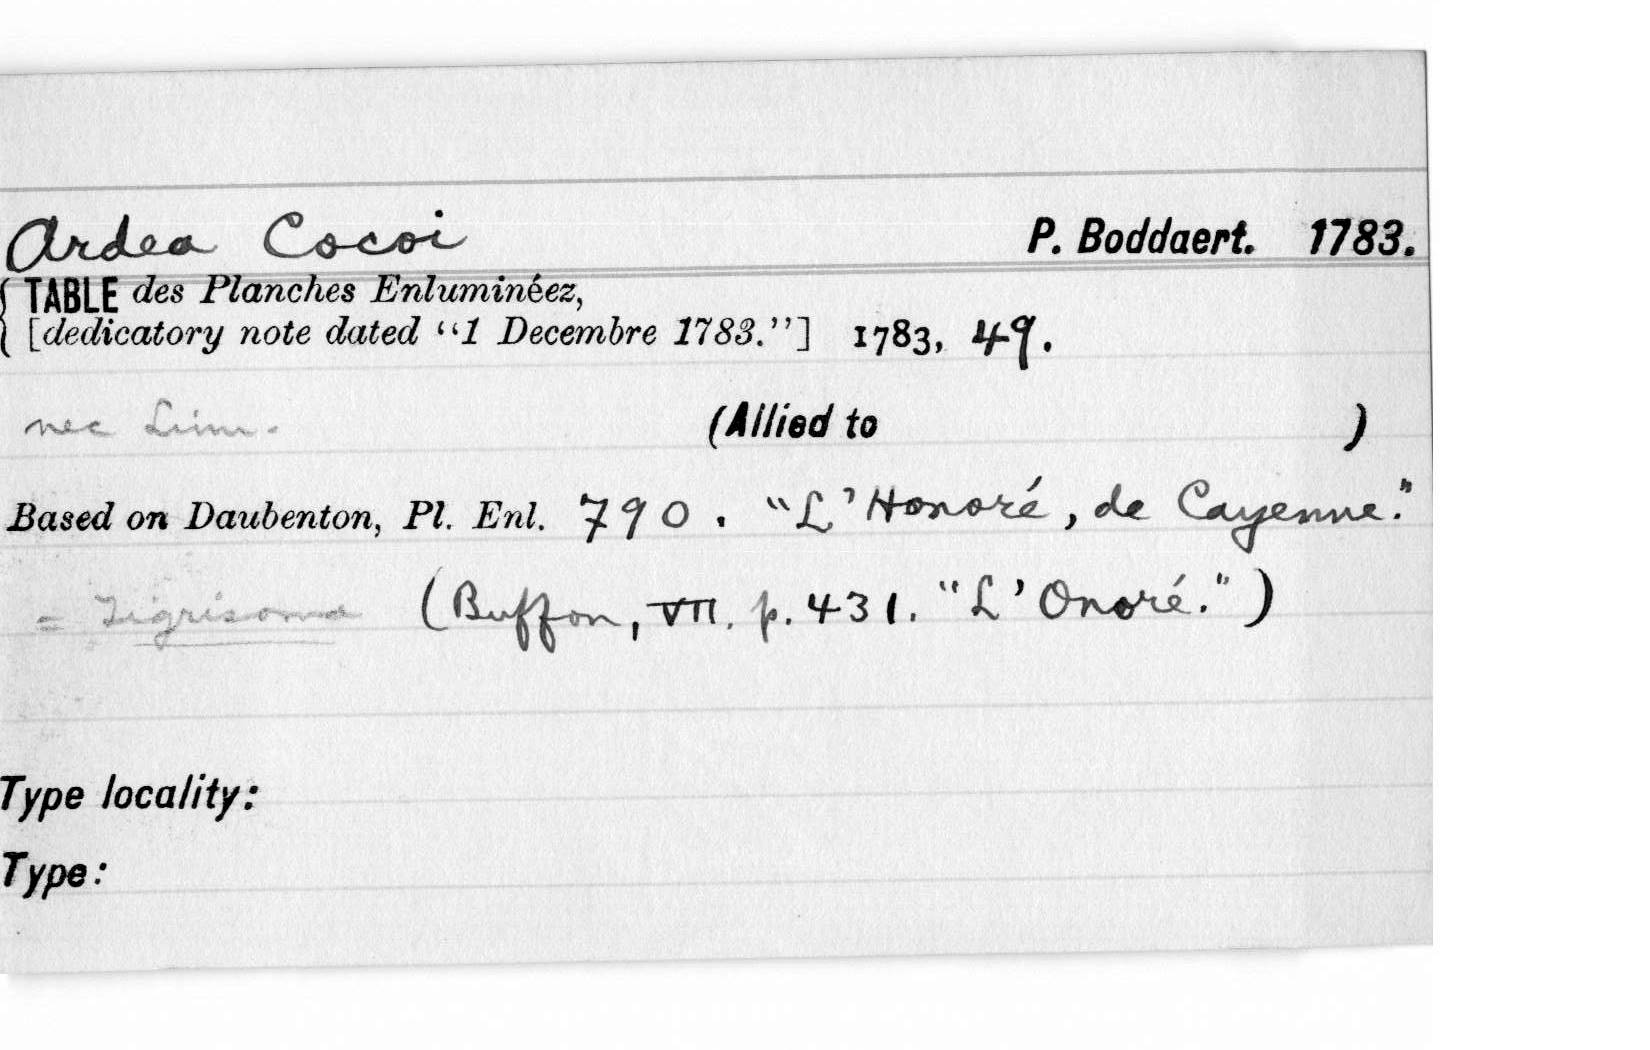 Ardea Cocoi P. Boddaert. 1783.
TABLE des Planches Enluminéez,
[dedicatory note dated “1 Decembre 1783.”] 1783, 49.
nec Linn. (Allied to )
Based on Daubenton, Pl. Enl. 790. "L'Honoré, de Cayenne."
= Tigrisoma (Buffon, VII. p. 431. "L'Onoré.")
Type locality:
Type: